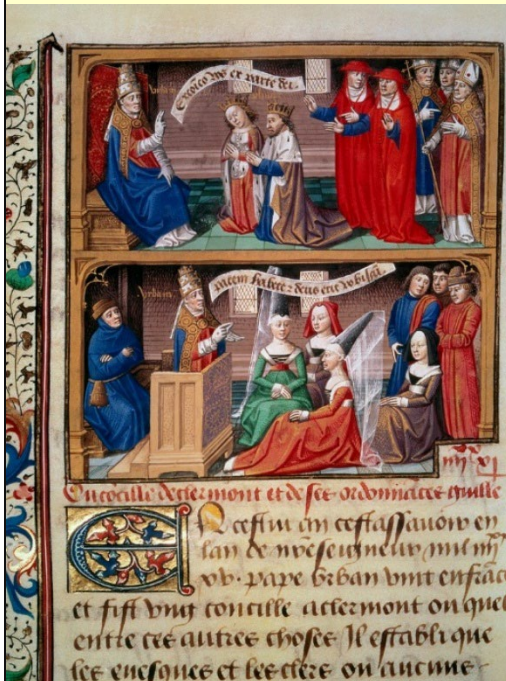 Urbain
ex parte dei
Urbain
pacem habete deus erit vobiscu
iiijxx xj
Du cocille de clermont et de ses ordonnaces quille
En cestui an cestassavoir en
lan de nrēseigneur mil iiijxx
xv. pape Urban vint enfrāce
et fist ung concille a clermont ou quel
entre ces autres choses Il establi que
les evesques et les clers ou aucuns